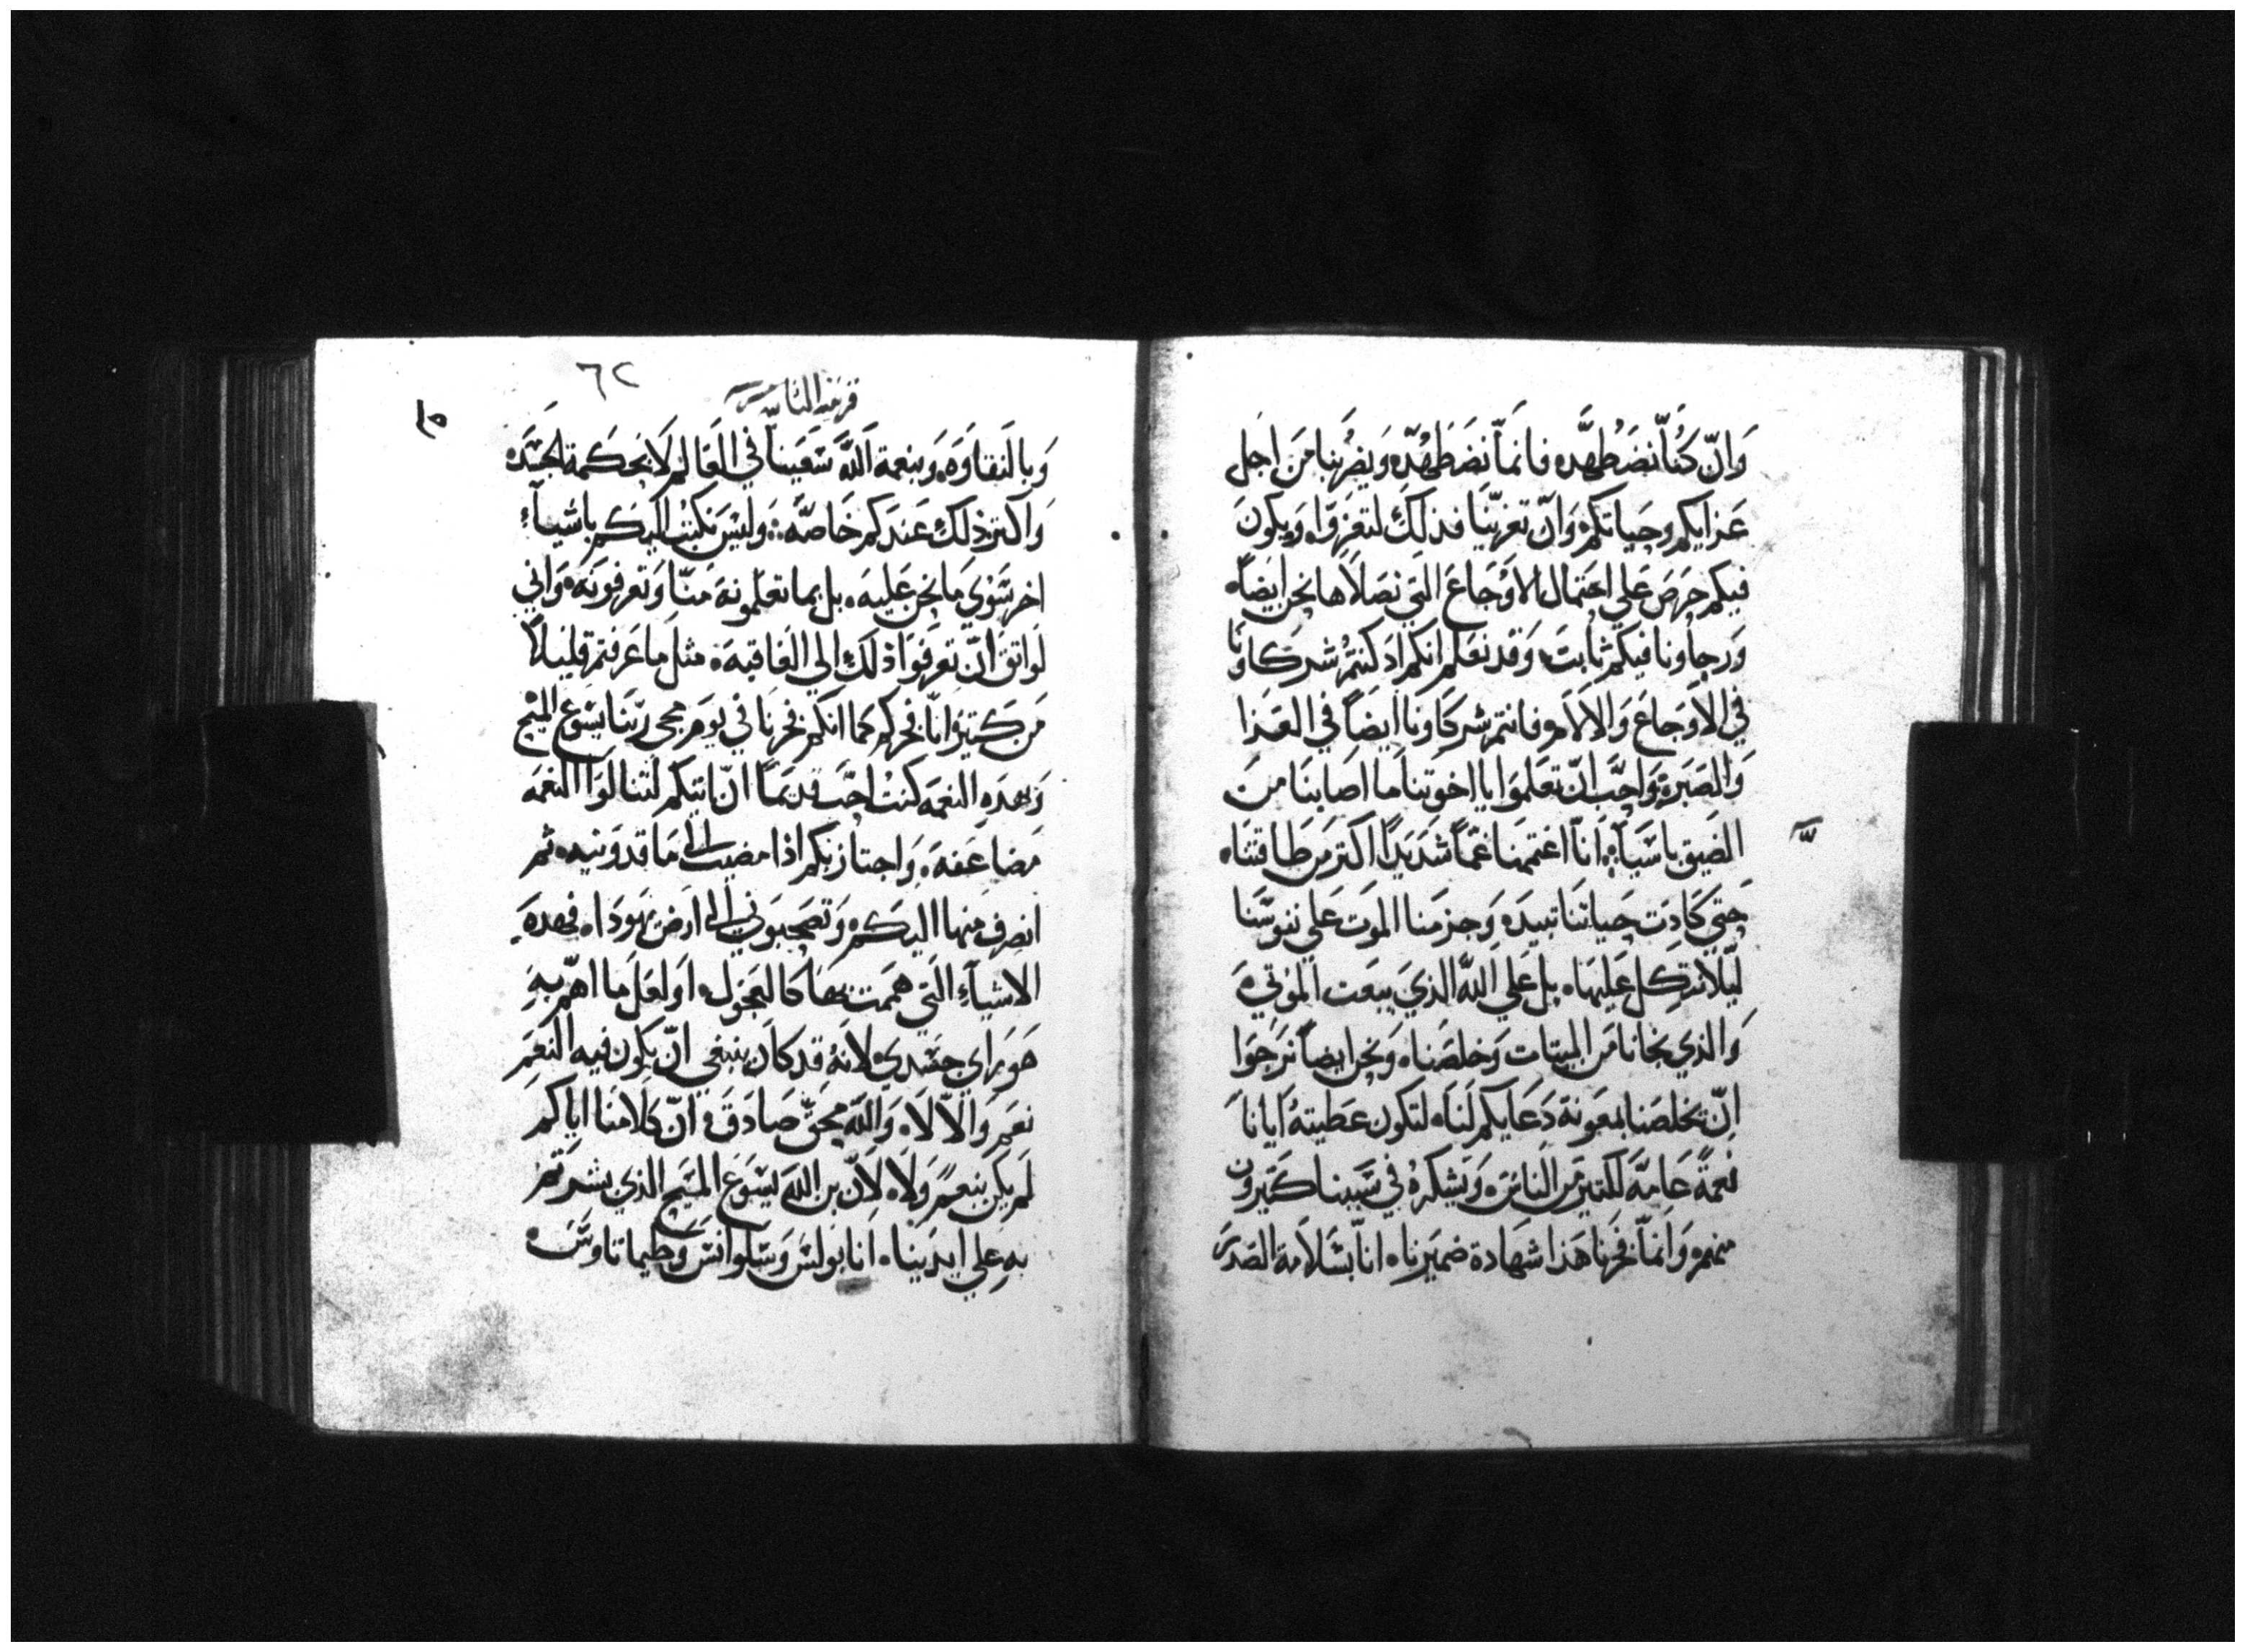 وَانّ كُناّ نضَطهَده فانمَاّ نضَطهّده وَيضرَبنا مَن اجَل
عَزايكم وحَياتكم وَانّ تعزيّنا فذلكَ لتعزوَّا ه وَيكونَ
فيكم حرَصَ عَلي احَتمال الاوْجَاعَ التَي نصَلاَها نحَن ايضاً ه
وَرجاونا فيكم ثابتَ ه وَقدَ نعَلم انكم اذ كنتمُ شركاونَا
في الاَوَجاعَ وَالاَلاَم فانتم شركاونا ايضَاً في العَذا
وَالصَبَر ه وَاحبَّ انّ تعَلموَا يا اخوَتِنا ما اصَابنَا مِن
الضَيق باسَيَا ه اناّ اغتمَمنا غمَّاً شدَيَداً اكتر مَن طاقتنَا ه
حَتي كَادَت حَياتنَا تبيدَ ه وَجزمَنا الموَت عَلي نفوسَّنا
ليَلاّ نتكِل عَليهَا ه بل عَلي اللَّه الذيَ يبعَت الموْتي ه
وَالذي نجانا مَن الميتات وَخلصَنا ه وَنحن ايضاً نرَجوَا
انّ يخلصَنا بمعَونة دَعَايكم لَنا ه لتكون عَطيتهُ ايانا
نعَمةً عَامةَ لَلكتير مَن النَاس ه وَيشكرهُ في سَببنا كَتيروَن
منهم ه وَانماّ فخرَنا هَذا شهَادة ضميَرنا ه اناّ بسَلاَمة الصَدر
٦٢
قرنتيه الثانيه
وَبالنقاوَه ه وَبنعمة اللَّه سَعَينا في العَالم لَا بحَكمة الجسَدَ ه
وَاكتر ذلك عَندَكم خَاصَّه ه وَليسَ نكتبْ اليَكم باشيآء
اخر سَوَي مَا نحَن عَليهَ ه بل بما تعَلمونهَ مَنّا وَتعرفونهَ ه وَاني
لوَاتقَ انّ تعَرفوَا ذلَك الي العَاقبهَ ه مثلَ ما عَرفتم قليلاً
مَن كتير وَاناّ فخركم كما انكم فخرنا في يوَم مجي ربّنا يسَوع المسَيح
وَبهَذه النعمَه كنتْ احَبّ قديمَاً انّ اتيكم لتنالوَا النعَمه
مَضاعَفهَ ه وَاجتاز بكم اذا مضيت الي مَاقدوَنيه ه ثم
انصرف منها اليَكم ه وَتصَحبوَني الي ارَض يهوَدَا ه فهذهَ
الاشيآءَ التَي هَممَت بهَا كالعَجوَل ه اوَ لعَلَ ما اهمّ بهِ
هَو رَاي جسَدي ه لانَهُ قد كانَ ينبغي انّ يكون فيه النعَمِ
نعَم وَالاّ لَا ه وَاللَّه محَقّ صَادَقَ ه انّ كَلامَنا اياكم
لَم يكنَ بنعَم وَلَا ه لَانّ بن اللَّه يَسَوعَ المسَيح الذي بشرَتم
بهِ عَلي ايديَنا ه انا بَولسَ وَسَلوانسَ وَطيماتاوسَ ه